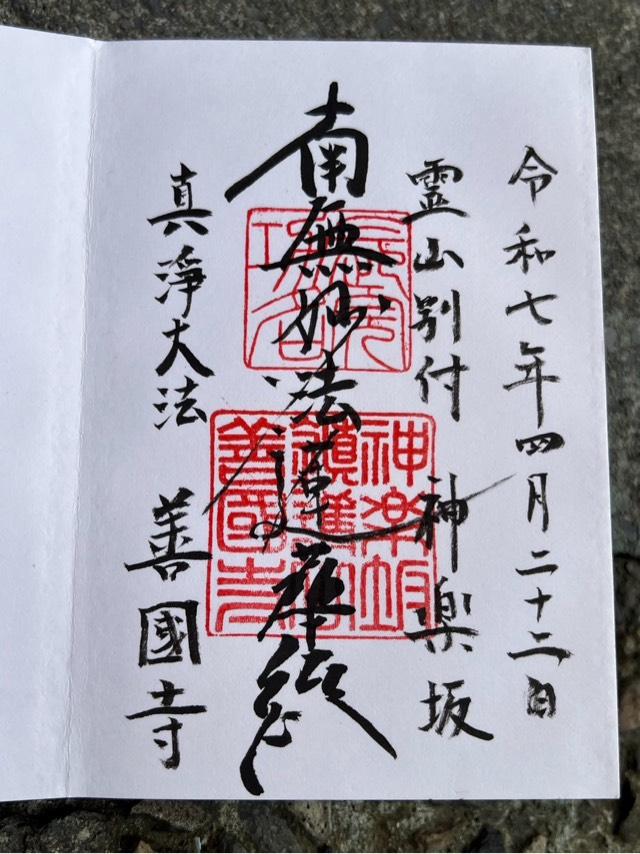 令和七年四月二十二日
霊山別付 神楽坂
南無妙法蓮華経
真淨大法 善國寺
神楽坂
鎮護山
善國寺